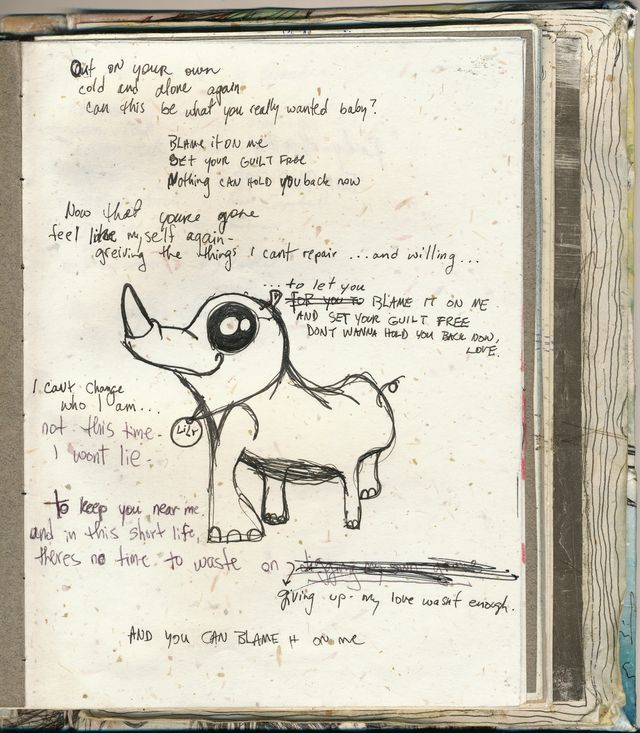 Out on your own
cold and alone again
can this be what you really wanted baby?
BLAME it ON ME
SET YOUR GUILT FREE
Nothing CAN HOLD YOU back now
Now that youre gone
feel like myself again-
greiving the things i cant repair ...and willing...
...to let you
FOR YOU TO BLAME IT ON ME
AND SET YOUR GUILT FREE
DON'T WANNA HOLD YOU BACK NOW,
LOVE.
I can't change
who I am...
not this time-
I wont lie-
LiLy
to keep you near me
and in this short life,
theres no time to waste on
giving up- my love wasnt enough.
AND YOU CAN BLAME it ON Me